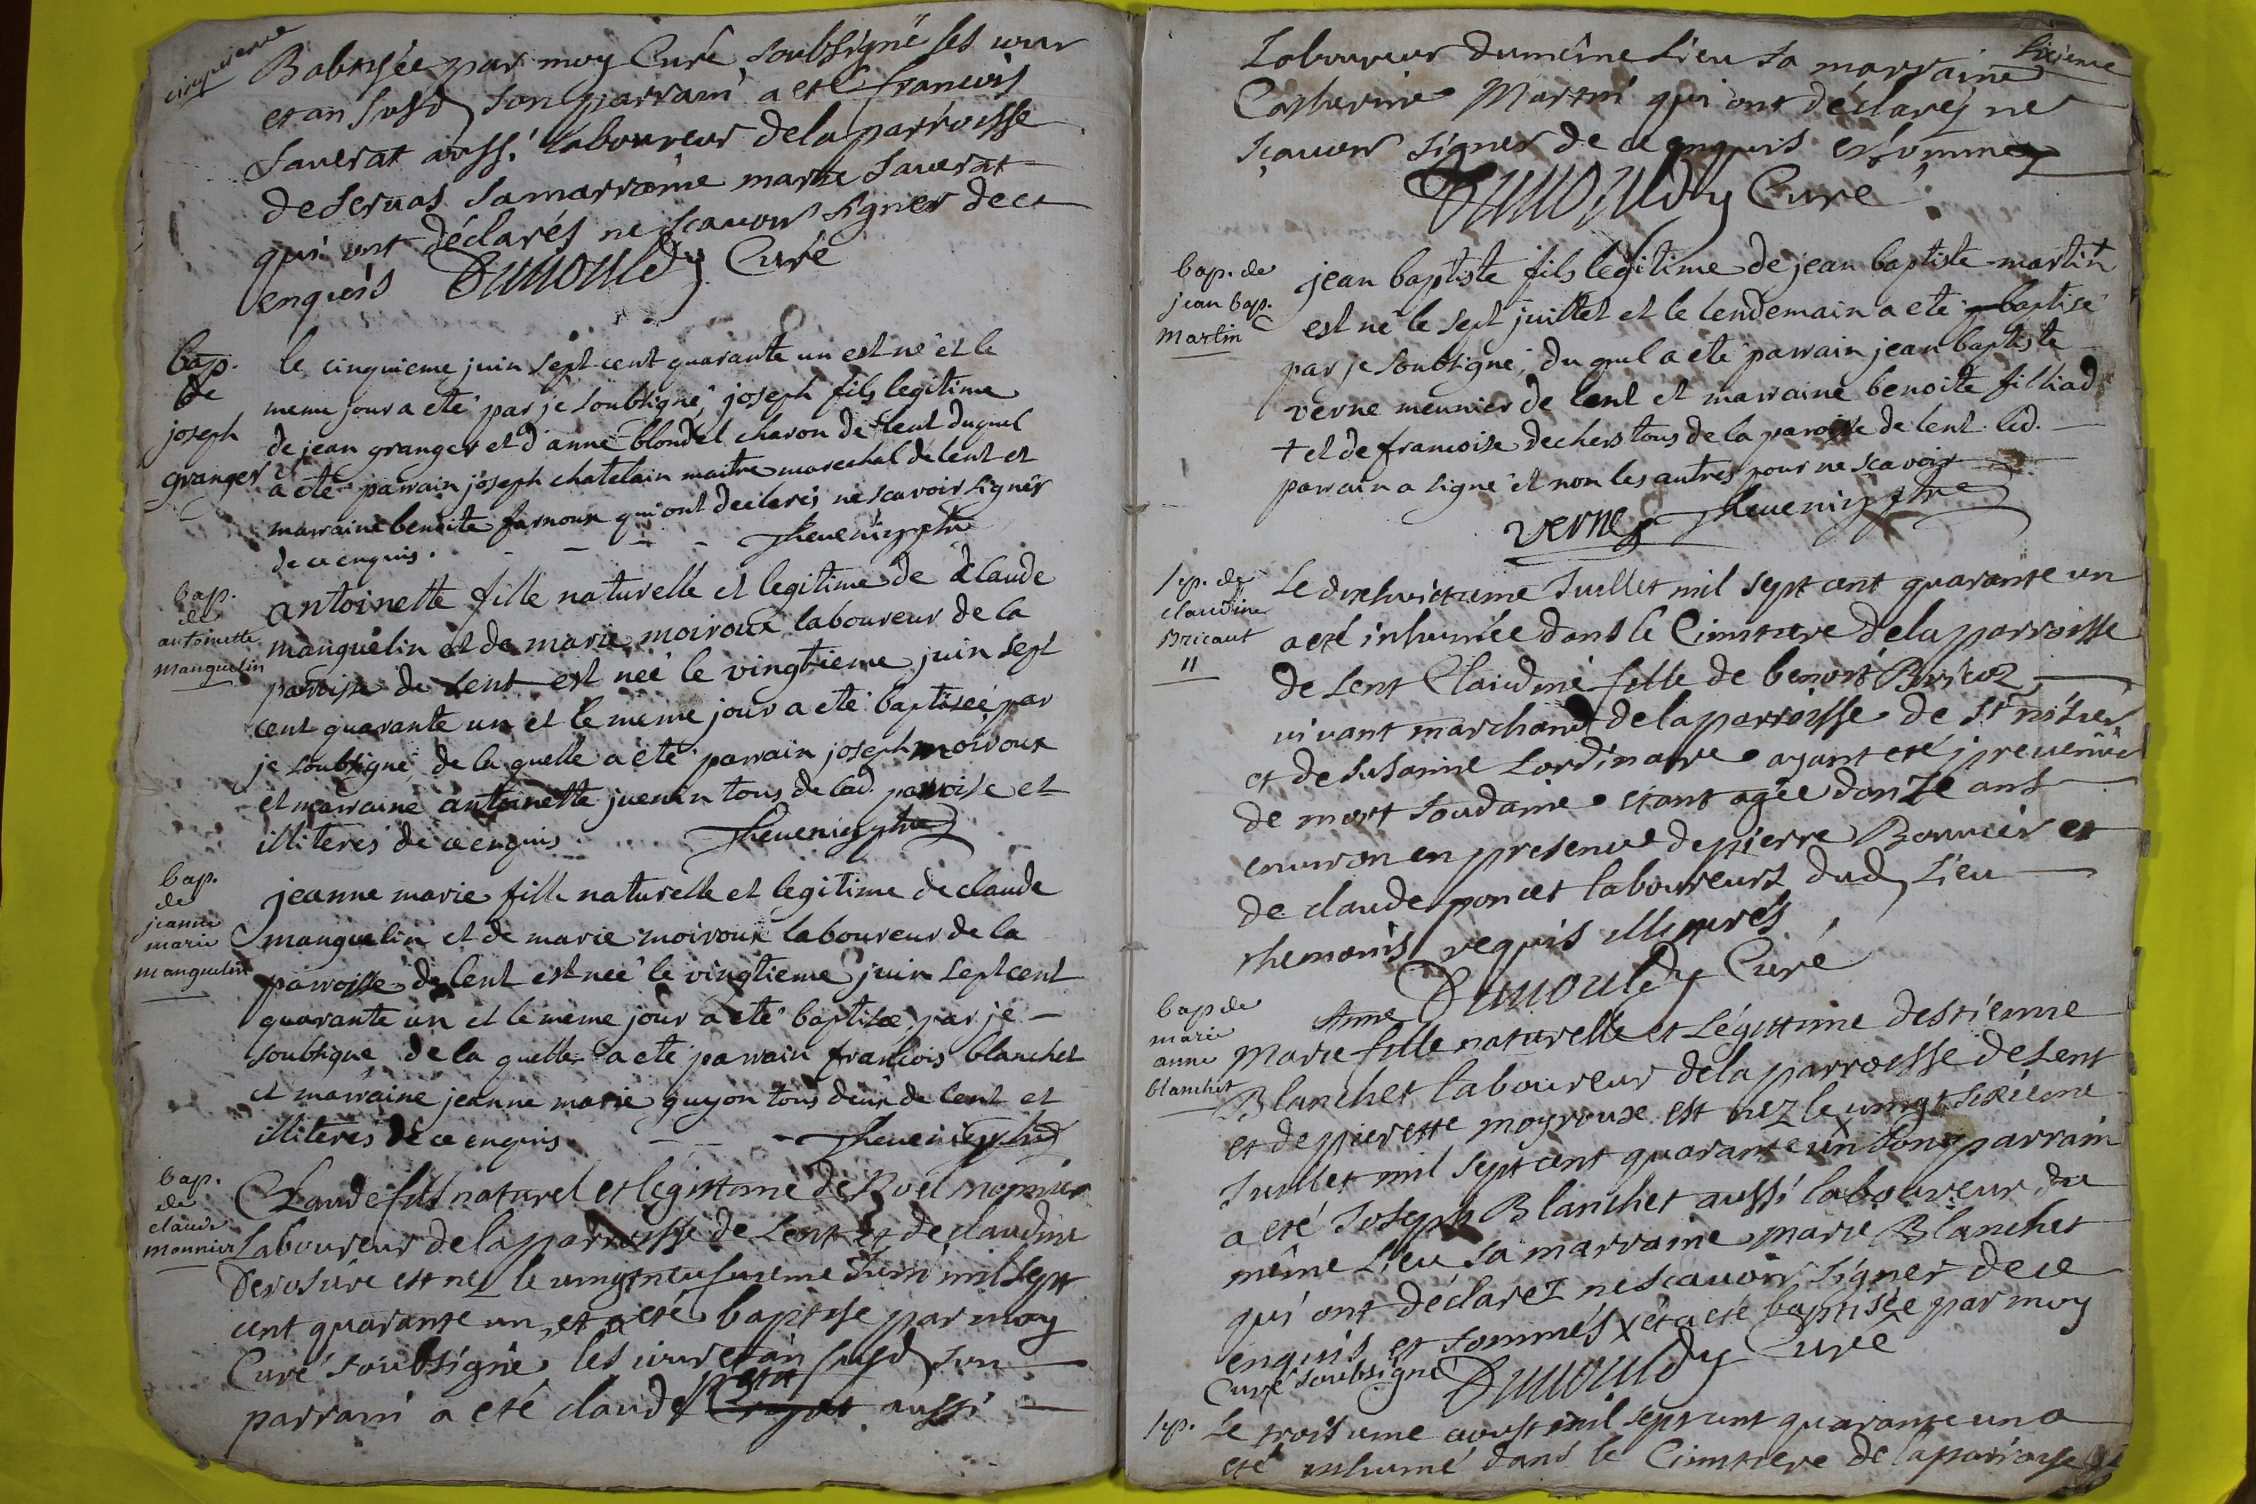 cinquieme
Babtisée par moy Curé soubsigné les jour
et an susd son parrain a eté francois
Saverat aussi laboureur de la parroisse
de Servas sa marraine marie Saverat
qui ont déclarés ne scavoir signer de ce
enquis Dunoyuldy Curé
bap.
de
joseph
granger
le cinquieme juin sept cent quarante un est né et le
meme jour a eté par je soubsigné, joseph fils legitime
de jean granger et d'anne blondel charon de lent duquel
a eté parrain joseph chatelain maitre marechal de lent et
marraine benoite farnoux qui ont declarés ne scavoir signer
de ce enquis. - - - - Thevenin ptre
bap.
de
antoinette
manguelin
antoinette fille naturelle et legitime de claude
manguelin et de marie moiroux laboureur de la
paroisse de Lent est née le vingtieme juin sept
cent quarante un et le meme jour a eté baptisée par
je soubsigné, de la quelle a eté parrain joseph moiroux
et marraine antoinette juenin tous de lad. paroise et
illiterés de ce enquis Thevenin ptre
bap.
de
jeanne
marie
manguelin
jeanne marie fille naturelle et legitime de claude
manguelin et de marie moiroux laboureur de la
paroisse de lent est née le vingtieme juin sept cent
quarante un et le meme jour a eté baptisée par je —
soubsigné de la quelle a eté parrain francois blanchet
et marraine jeanne marie guyon tous deux de lent et
illiterés de ce enquis - - - Thevenin ptre
bap.
de
claude
monnier
Claude fils naturel et legittime de Noel monnier
Laboureur de la parroisse de Lent et de claudine
Derosure est nez le vingtneufuieme Juin mil sept
cent quarante un, et a eté baptise par moy
Curé soubsigné les jour et an susd son
parrain a eté claude aussi
Sixieme
Laboureur du même Lieu sa marraine
Catherine Martin qui ont déclarés ne
sçavoir signer de ce enquis et sommez
Curé
bap. de
jean bap.
Martin
jean baptiste fils legitime de jean baptiste martin +
est né le sept juillet et le lendemain a eté baptisé
par je soubsigné, du quel a eté parrain jean baptiste
verne meunier de lent et marraine benoite filliad
+ et de francoise dechers tous de la paroisse de lent. led.
parrain a signé et non les autres pour ne scavoir
verne Thevenin ptre
sep. de
claudine
Bricaut
11
Le dixhuictieme Juillet mil sept cent quarante un
a eté inhumée dans le Cimitiere de la parroisse
de Lent Claudine fille de benoit Bricoz
vivant marchand de la parroisse de St nisier
et de Susanne Lordinaire ayant eté prevenüe
de mort soudaine etant agée donze ans
environ en presence de pierre Bonnier et
de claude poncet laboureurs dud Lieu
themoins requis illiterés
Curé
bap de
marie
anne
blanchet
Anne
Marie fille naturelle et Légittime destienne
Blanchet laboureur de la parroisse de Lent
et de pierette moyroux est nez le vingt sixiéme
Juillet mil sept cent quarante un son parrain
a eté Joseph Blanchet aussi laboureur du
même Lieu sa marraine marie Blanchet
qui ont déclarez ne scavoir signer de ce
enquis et sommés x et a eté baptisée par moy
Curé soubsigné Curé
sep.
Le troisieme aoust mil sept cent quarante un a
eté inhumé dans le Cimitiere de la parroisse